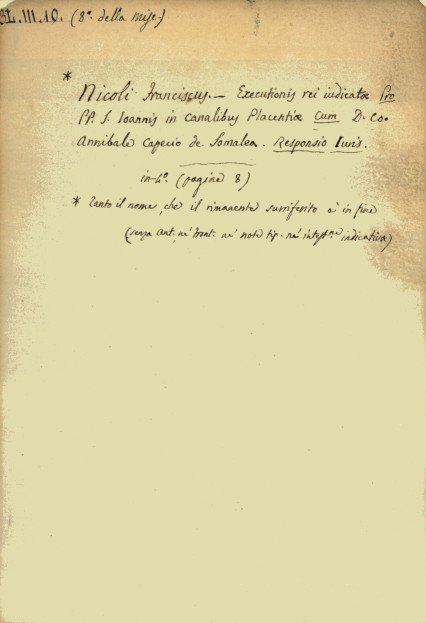 3L.III.10. (8º. della misc.)
* Nicoli Franciscus. — Executionis rei iudicatæ Pro
PP. S. Ioannis in Canalibus Placentiæ Cum D. Co.
Annibale Capecio de Somalea. Responsio Iuris.
in-4º. (pagine 8)
* Tanto il nome, che il rimanente surriferito è in fine
(senza ant. nè front. nè note tip. nè intest.ne indicativa)